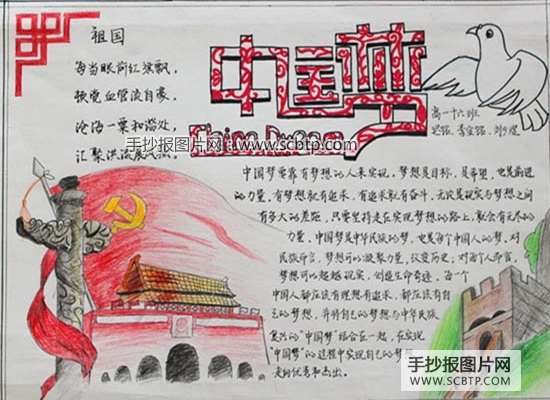 祖国
每当眼前红旗飘,
顿觉血管流自豪,
沧海一粟和谐处,
汇聚洪流
中国梦
China Dream
高一十六班
手抄报图片网
www.scbtp.com
中国梦要靠有梦想的人来实现。梦想是目标,是希望,也是前进
的力量,有梦想就有追求,有追求就有奋斗,无论是现实与梦想之间
有多大的差距,只要坚持走在实现梦想的路上,就会有无尽的
力量,中国梦是中华民族的梦,也是每个中国人的梦,对
民族而言,梦想可以凝聚力量,改变历史;对每个人而言,
梦想可以超越现实,创造生命奇迹,每一个
中国人都应该有理想有追求,都应该有自
己的梦想,并将自己的梦想与中华民族
复兴的“中国梦”结合在一起,在实现
“中国梦”的过程中实现自己的梦想
走向优秀和杰出。
手抄报图片网
WWW.SCBTP.COM